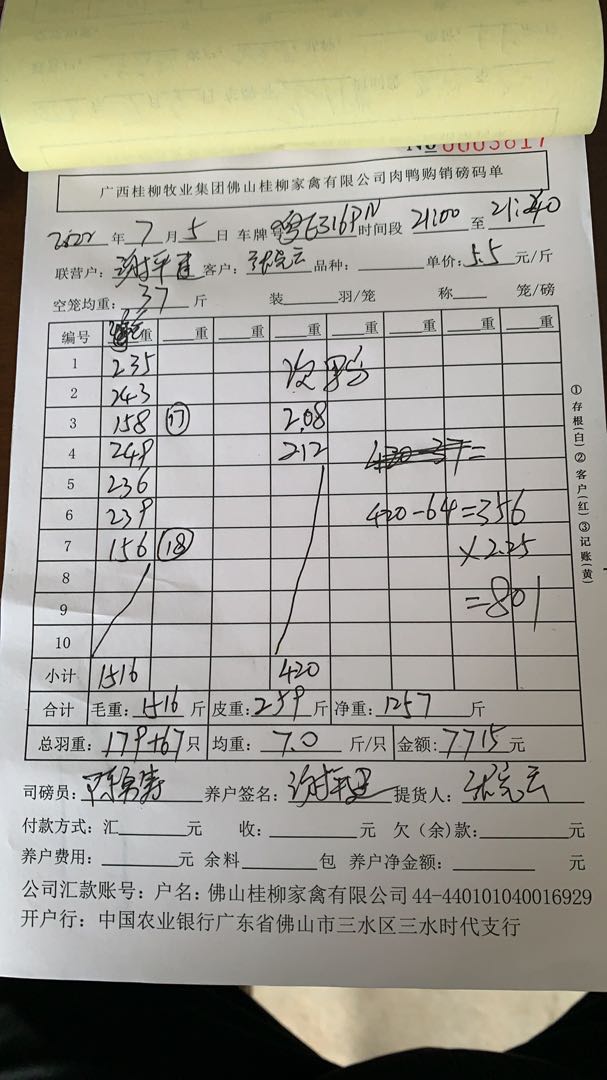 №0003817
广西桂柳牧业集团佛山桂柳家禽有限公司肉鸭购销磅码单
2022年7月5日 车牌号粤E316PN时间段21:00至21:40
联营户: 客户: 品种: 单价:5.5元/斤
空笼均重:37斤 装 羽/笼 称 笼/磅
编号 重 重 重 重 重 重 重
1 235 次 
2 243
3 158 ⑰ 2.08
4 249 212 420-37=
5 236
6 239 420-64=356
7 156 ⑱ ×2.25
8
9 =801
10
小计 1516 420
合计 毛重:1516斤 皮重:259斤 净重:1257斤
总羽重:179+67只 均重:7.0斤/只 金额:7715元
司磅员: 养户签名: 提货人:
付款方式:汇 元 收: 元 欠(余)款: 元
养户费用: 元 余料 包 养户净金额: 元
公司汇款账号:户名:佛山桂柳家禽有限公司 44-440101040016929
开户行:中国农业银行广东省佛山市三水区三水时代支行
①存根(白)②客户(红)③记账(黄)